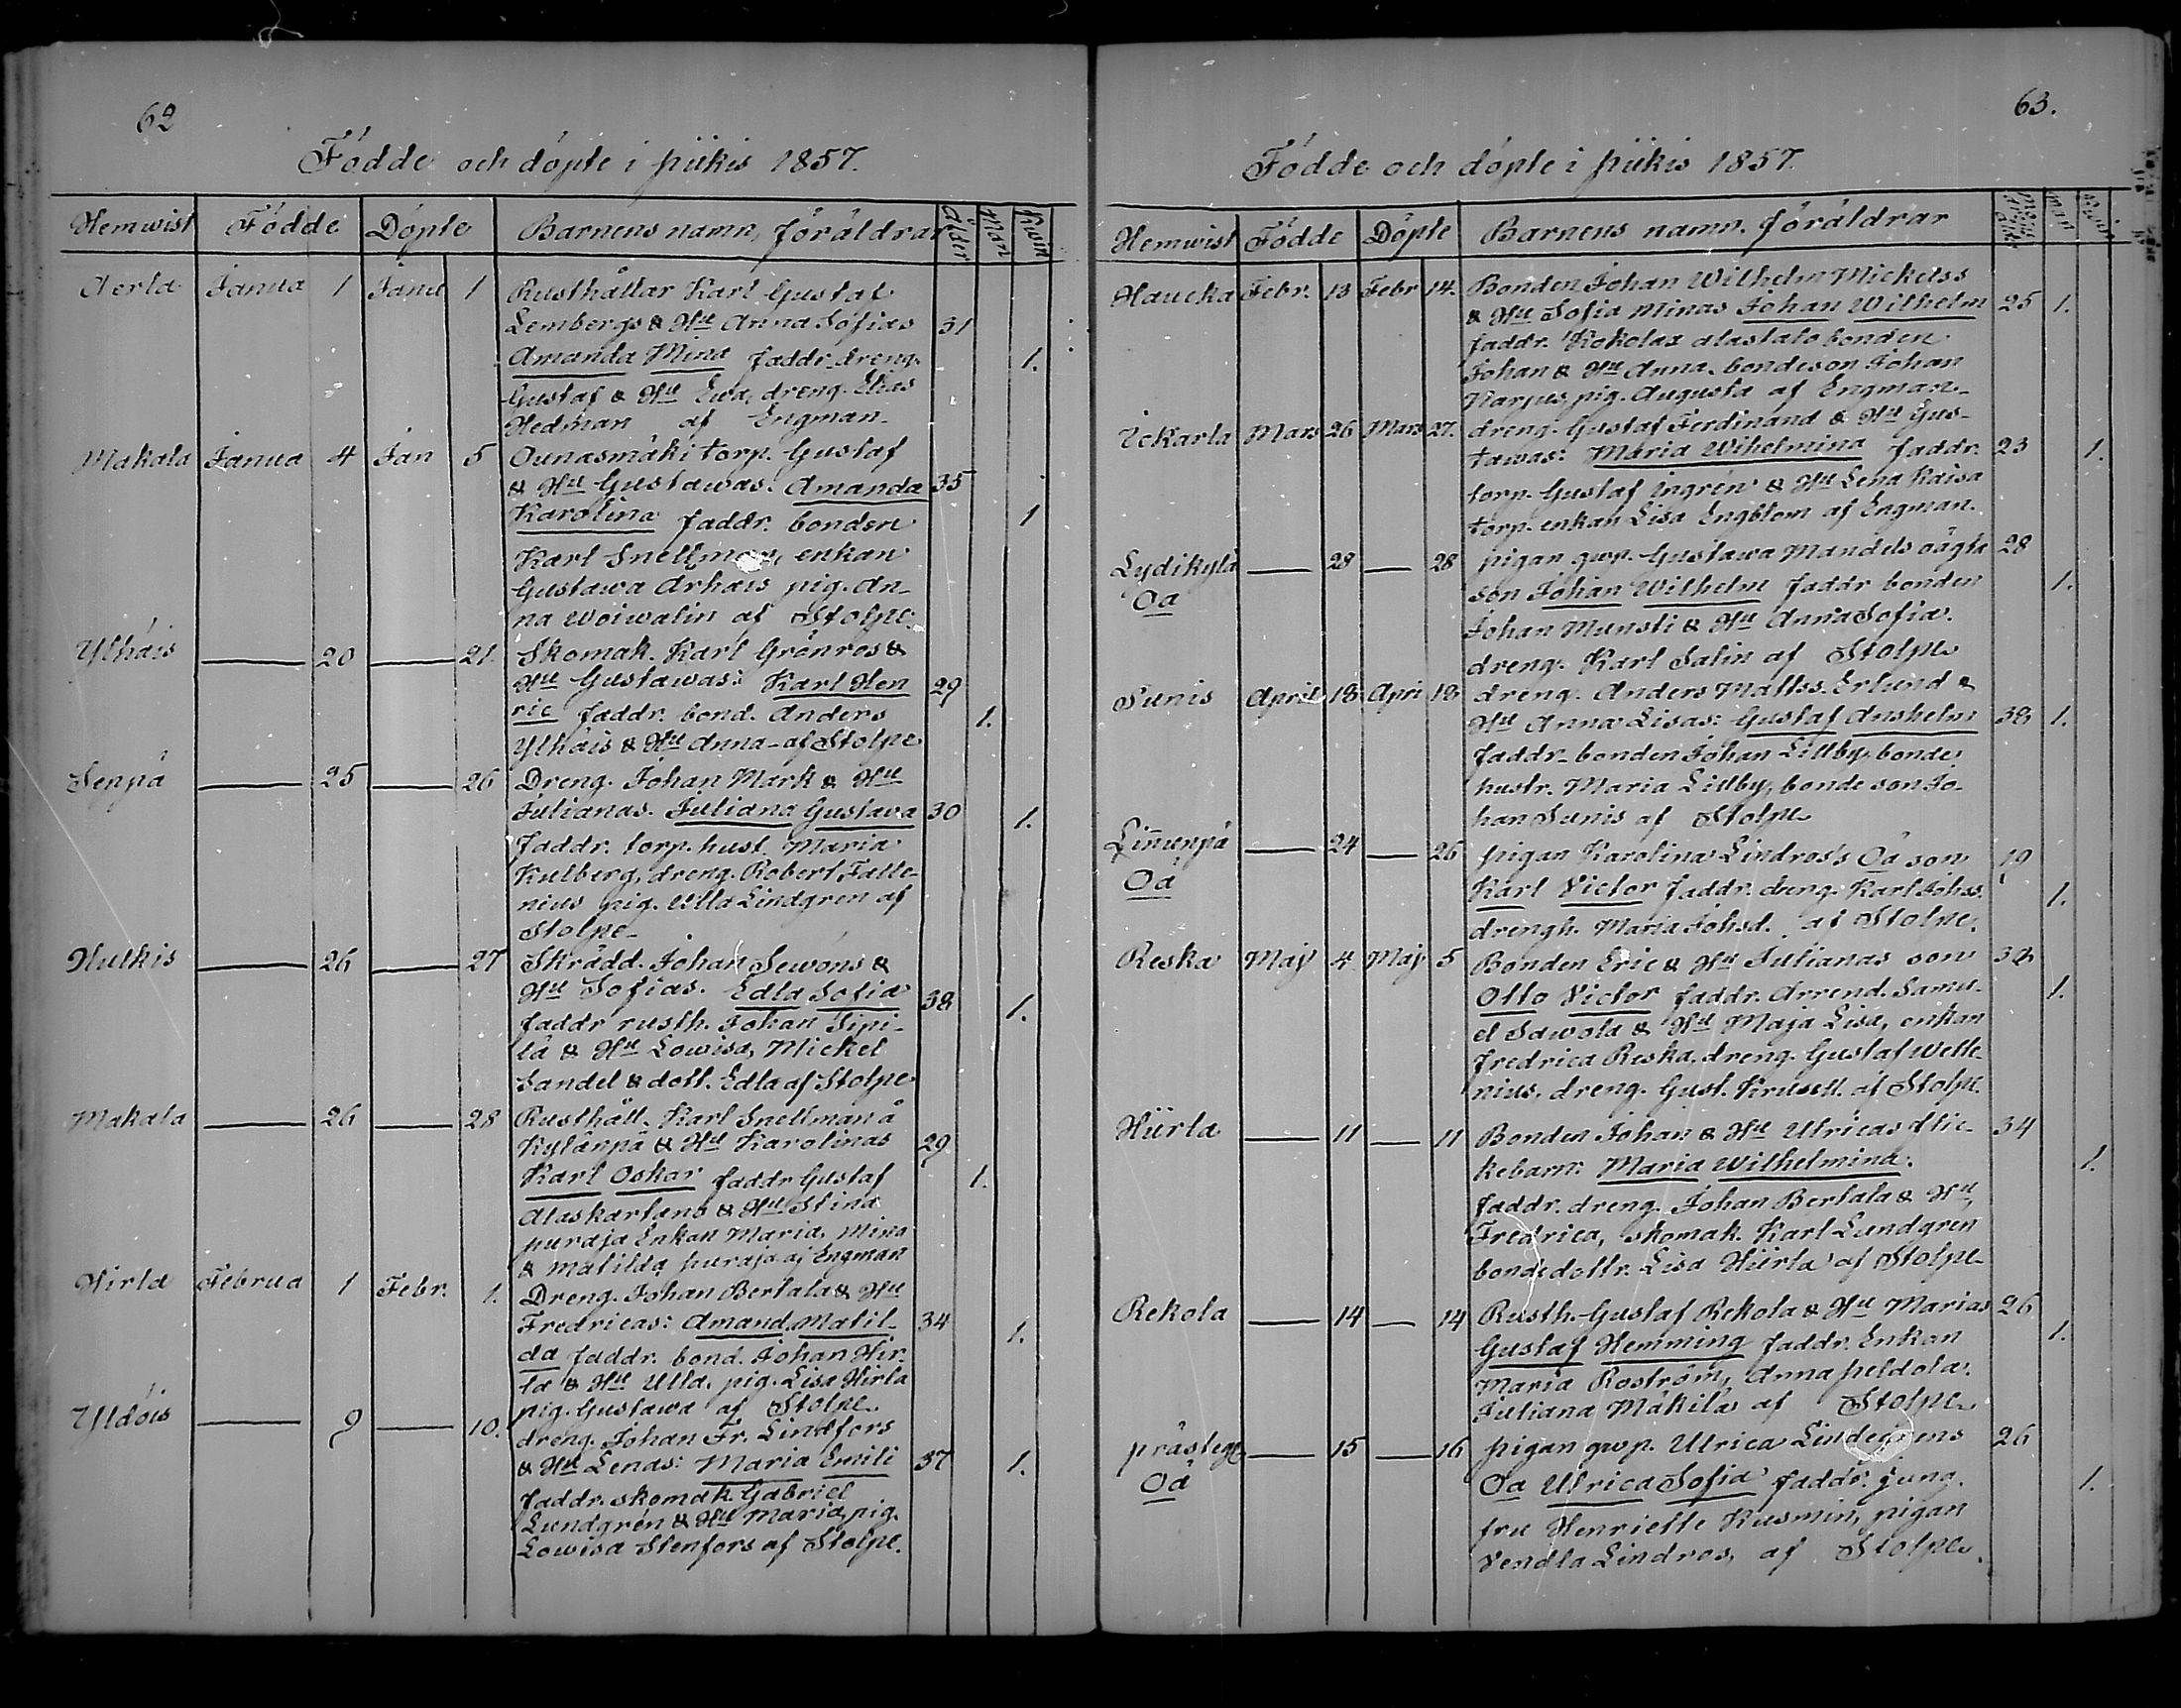 62
Födde och döpte i piikis 1857.
Hemwist Födde Döpte Barnens namn, föräldrar ålder Man Kvin
Aerla Janua 1 Janu 1 Rusthållar Karl Gustaf
Lembergs & Hu Anna Sofias 31
Amanda Mina faddr. dreng. 1.
Gustaf & Hu Ewa, dreng. Elias
Hedman af Engman.
Makala Janua 4 Jan 5 Ounasmäki torp. Gustaf
& Hu Gustawas: Amanda 35
Karolina faddr. bonden 1
Karl Snellman, enkan
Gustawa Arhais pig. An-
na Woiwalin af Stolpe.
Ylhäis — 20 — 21. Skomak. Karl Grönros &
Hu Gustawas: Karl Hen 29
ric faddr. bond. Anders 1.
Ylhäis & Hu Anna - af Stolpe
Senpä — 25 — 26 Dreng. Johan Mark & Hu
Julianas. Juliana Gustava 30 1.
faddr. torp. hust. Maria
Kulberg, dreng. Robert Falle-
nius pig. Ulla Lindgren af
Stolpe-
Hulkis — 26 — 27 Skrädd. Johan Sewóns &
Hu Sofias. Edla Sofia 38 1.
faddr rusth. Johan Sipi-
lä & Hu Lowisa, Mickel
Sandel & dott. Edla af Stolpe
Makala — 26 — 28 Rusthåll. Karl Snellman å
Kylänpä & Hu Karolinas 29
Karl Oskar faddr Gustaf 1.
Alaskartano & Hu Stina
puraja Enkan Maria, Mina
& Matilda puraja af Engman
Hirla Februa 1 Febr. 1. Dreng. Johan Bertala & Hu
Fredricas: Amand Matil- 34 1.
da faddr. bond. Johan Hir-
la & Hu Ulla, pig. Lisa Hirla
pig. Gustawa af Stolpe
Yldöis — 9 — 10. dreng. Johan Fr. Lindfors
& Hu Lenas: Maria Emili 37 1.
faddr. skomak. Gabriel
Lundgrén & Hu Maria, pig.
Lowisa Stenfors af Stolpe.
63.
Födde och döpte i piikis 1857.
Hemwist Födde Döpte Barnens namn. föräldrar
Haucka Febr. 13 Febr 14. Bonden Johan Wilhelm Mickelss
& Hu Sofia Minas Johan Wilhelm 25 1.
faddr. Kokolax alastalo bonden
Johan & Hu Anna. bondeson Johan
Karpus, pig. Augusta af Engman-
Ickarla Mars 26 Mars 27. dreng. Gustaf Ferdinand & Hu Gus-
tawas: Maria Wihelmina faddr. 23 1.
torp. Gustaf Ingrén & Hu Lena Kaisa
torp. enkan Lisa Engblom af Engman.
Lydikylä — 28 — 28 pigan qwp. Gustawa Mandels oägta 28
Oa son Johan Wilhelm faddr bonden 1.
Johan Munsti & Hu Anna Sofia.
dreng. Karl Salin af Stolpe
Sunis April 18 Apri 18 dreng. Anders Mattss. Erlund &
Hu Anna Lisas: Gustaf Anshelm 38 1.
faddr- bonden Johan Lillby, bonde
hustr. Maria Lillby, bonde son Jo-
han Sunis af Stolpe
Linunpä — 24 — 26 pigan Karolina Lindros's Oä son 19
Oä Karl Victor faddr. dreng. Karl Johss. 1.
drengh. Maria Johsd. af Stolpe.
Reska Maj 4 Maj 5 Bonden Eric & Hu Julianas son 38
Otto Victor faddr. Arrend. Samu- 1.
el Sawola & Hu Maja Lisa, enkan
Fredrica Reska, dreng. Gustaf Welle-
nius, dreng. Gust. Krusell. af Stolpe.
Hiirla — 11 — 11 Bonden Johan & Hu Ulricas flic- 34
kebarn: Maria Wilhelmina. 1.
faddr. dreng. Johan Bertala & Hu
Fredrica, skomak. Karl Lundgren
bondedottr. Lisa Hiirla af Stolpe-
Rekola — 14 — 14 Rusth. Gustaf Rekola & Hu Marias 26
Gustaf Hemming faddr. Enkan 1.
Maria Roström, Anna peldola.
Juliana Mäkilä af Stolpe
prästeg — 15 — 16 pigan qwp. Ulrica Lindegrens 26
Oä Oa Ulrica Sofia faddr. jung. 1.
fru Henriette Kusmin, pigan
Vendla Lindros, af Stolpe.